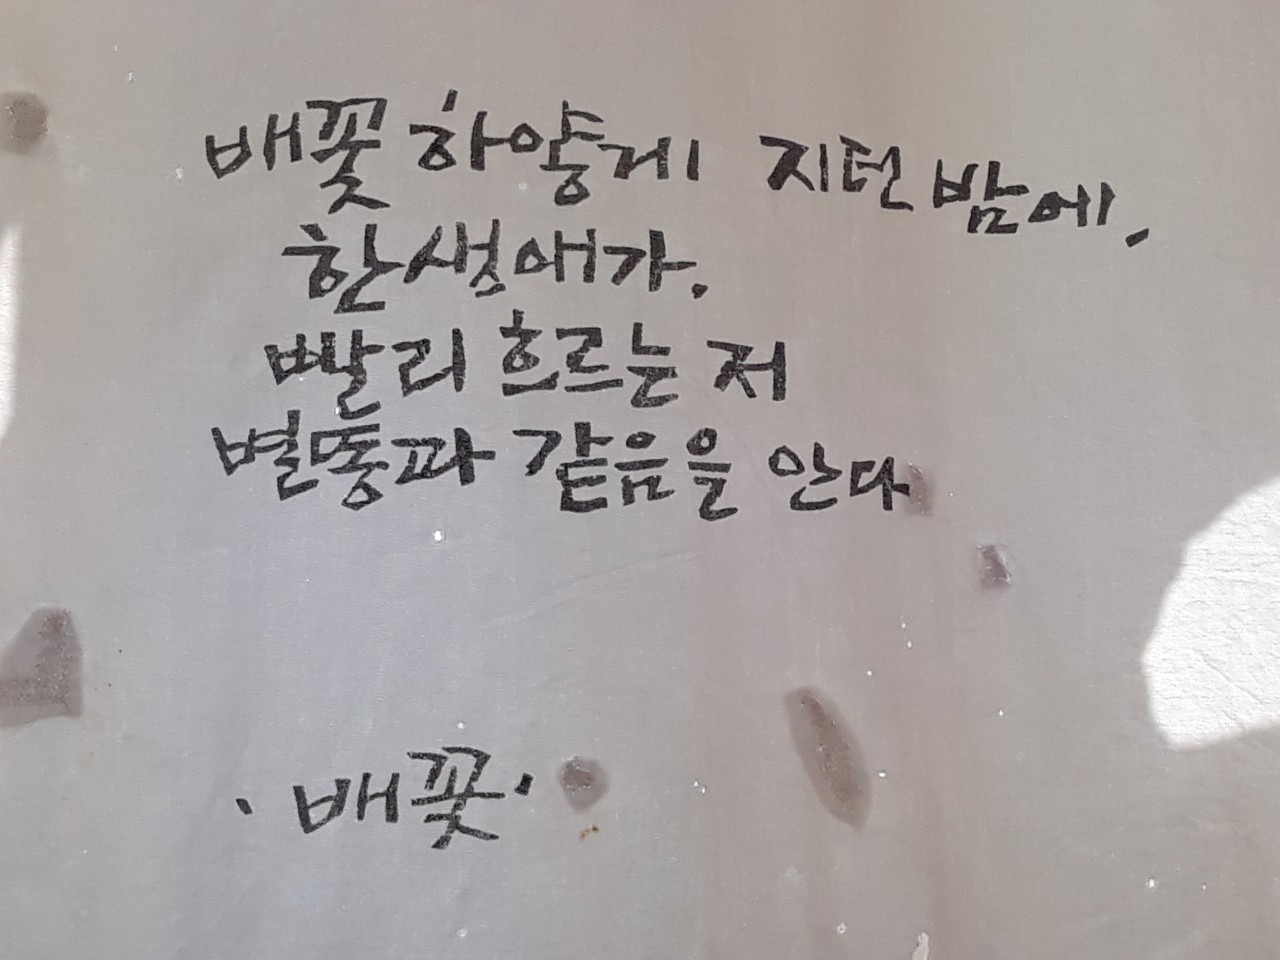 배꽃 하얗게 지던 밤에,
한 생애가.
빨리 흐르는 저
별똥과 같음을 안다
· 배꽃 ·